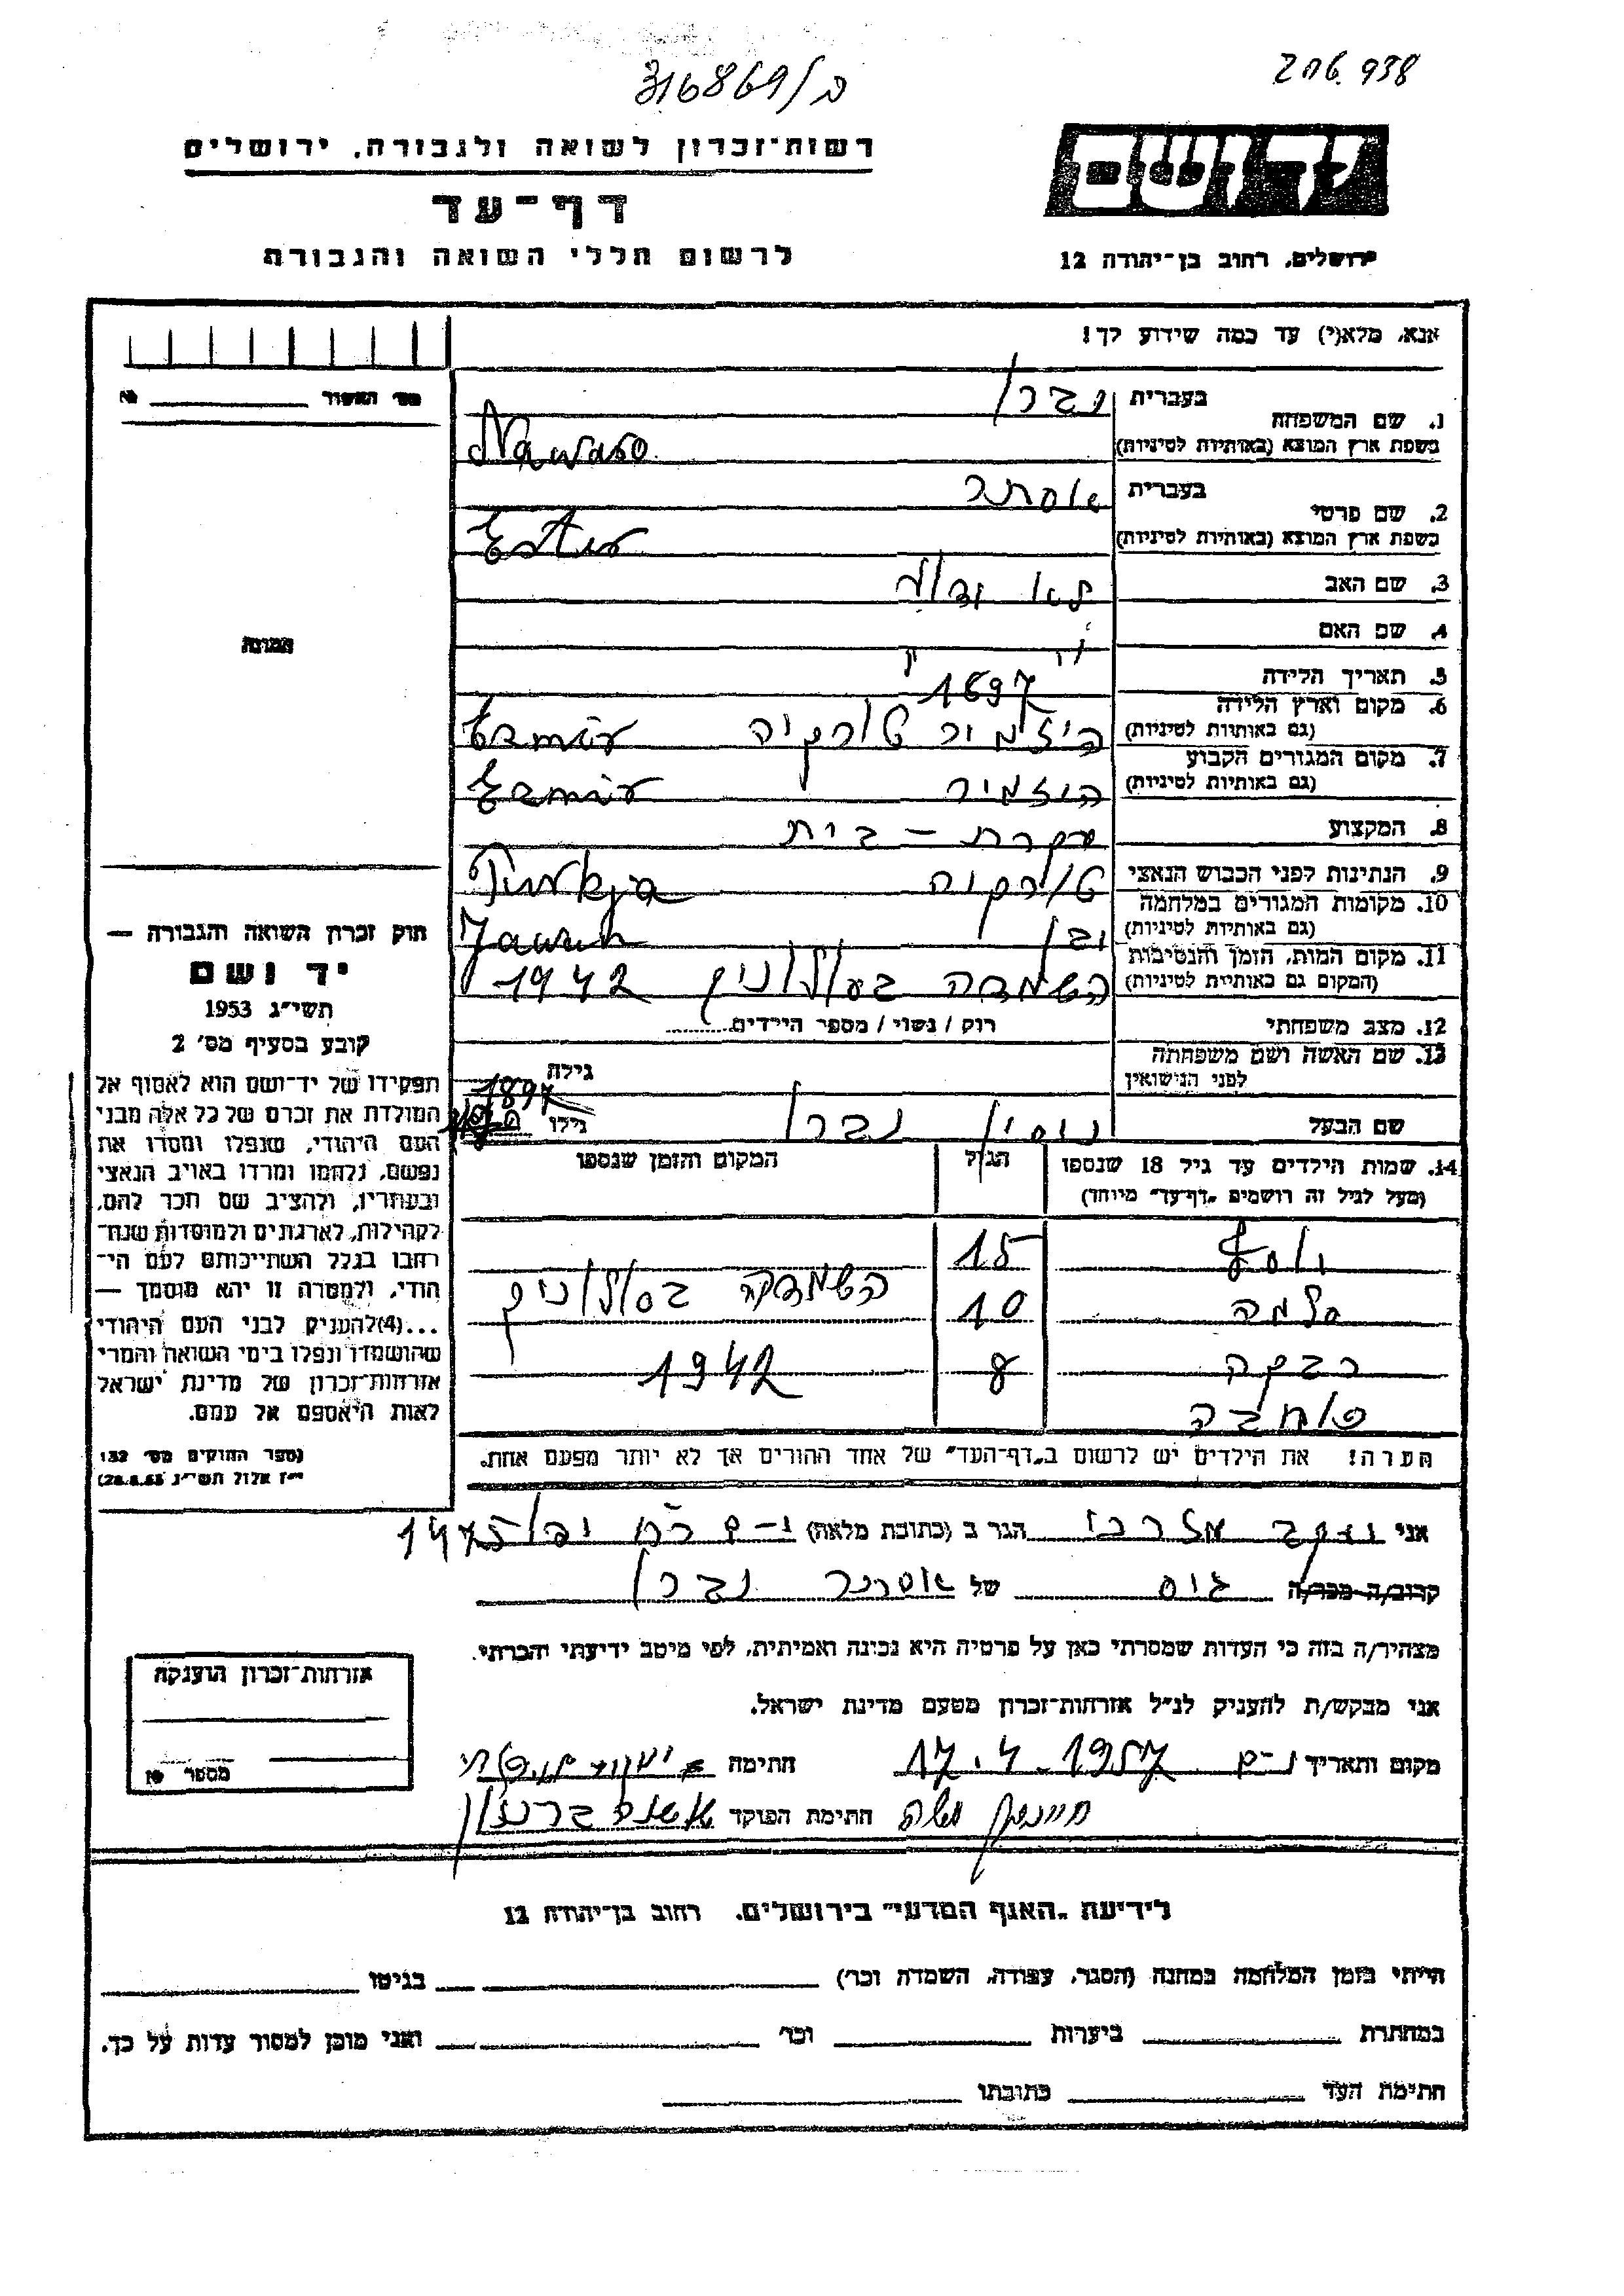 316869/ב
206.938
רשות־זכרון לשואה ולגבורה, ירושלים
דף־עד
לרשום חללי השואה והגבורה
ידושם
ירושלים, רחוב בן־יהודה 12
אנא, מלא(י) עד כמה שידוע לך!
מס׳ האשור № 
1. שם המשפחה
בעברית נברו
בשפת ארץ המוצא (באותיות לטיניות) Nawaro
2. שם פרטי
בעברית אסתר
בשפת ארץ המוצא (באותיות לטיניות) Ester
3. שם האב
4. שם האם
5. תאריך הלידה 1897
6. מקום וארץ הלידה
(גם באותיות לטיניות) היזמיר טורקיה Ezmir
7. מקום המגורים הקבוע
(גם באותיות לטיניות) היזמיר Ezmir
8. המקצוע עקרת - בית
9. הנתינות לפני הכבוש הנאצי טורקיה Turkja
10. מקומות המגורים במלחמה
(גם באותיות לטיניות)
11. מקום המות, הזמן והנסיבות
(המקום גם באותיית לטיניות) השמדה 1942
12. מצב משפחתי רוק / נשוי / מספר הילדים
13. שם האשה ושם משפחתה
לפני הנישואין
גילה 1897
שם הבעל נסים נברו גילו
14. שמות הילדים עד גיל 18 שנספו
(מעל לגיל זה רושמים „דף־עד״ מיוחד)
הגיל
המקום והזמן שנספו
יוסף 15
סלמה 10 השמדה
רבקה 8 1942
הערה! את הילדים יש לרשום ב„דף־העד״ של אחד ההורים אך לא יותר מפעם אחת.
תמונה
חוק זכרון השואה והגבורה —
יד ושם
תשי״ג 1953
קובע בסעיף מס׳ 2
תפקידו של יד־ושם הוא לאסוף אל
המולדת את זכרם של כל אלה מבני
העם היהודי, שנפלו ומסרו את
נפשם, נלחמו ומרדו באויב הנאצי
ובעוזריו, ולהציב שם וזכר להם,
לקהילות, לארגונים ולמוסדות שנח־
רבו בגלל השתייכותם לעם הי־
הודי, ולמטרה זו יהא מוסמך —
...(4) להעניק לבני העם היהודי
שהושמדו ונפלו בימי השואה והמרי
אזרחות־זכרון של מדינת ישראל
לאות היאספם אל עמם.
(ספר החוקים מס׳ 132
י״ז אלול תשי״ג 28.8.53)
אני יעקב הגר ב (כתובת מלאה)
קרוב/ה מכר/ה גיס של אסתר נברו
מצהיר/ה בזה כי העדות שמסרתי כאן על פרטיה היא נכונה ואמיתית, לפי מיטב ידיעתי והכרתי.
אני מבקש/ת להעניק לנ״ל אזרחות־זכרון מטעם מדינת ישראל.
מקום ותאריך י-ם 17.4.1957 חתימה
חתימת הפוקד
אזרחות־זכרון הוענקה
מספר №
לידיעת „האגף המדעי״ בירושלים. רחוב בן־יהודה 12
הייתי בזמן המלחמה במחנה (הסגר, עבודה, השמדה וכו׳) בגיטו
במחתרת ביערות וכו׳ ואני מוכן למסור עדות על כך.
חתימת העד כתובתו